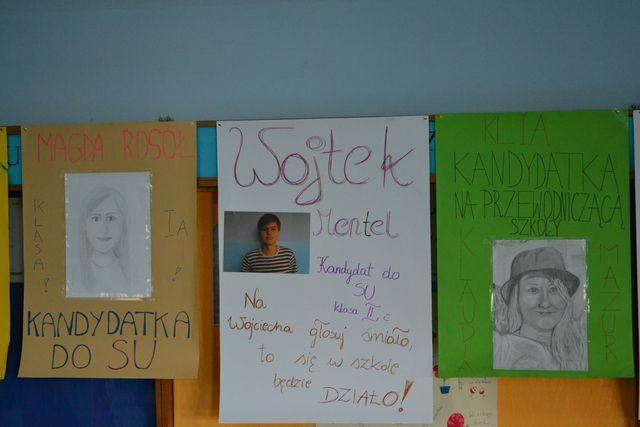 MAGDA ROSÓŁ
KLASA
IA
!
!
KANDYDATKA
DO SU
Wojtek
Mentel
Kandydat do
SU
klasa II c
Na
Wojciecha głosuj śmiało,
to się w szkole
będzie DZIAŁO!
KL IA
KANDYDATKA
NA PRZEWODNICZĄCĄ
SZKOŁY
KLAUDIA
MAZUR